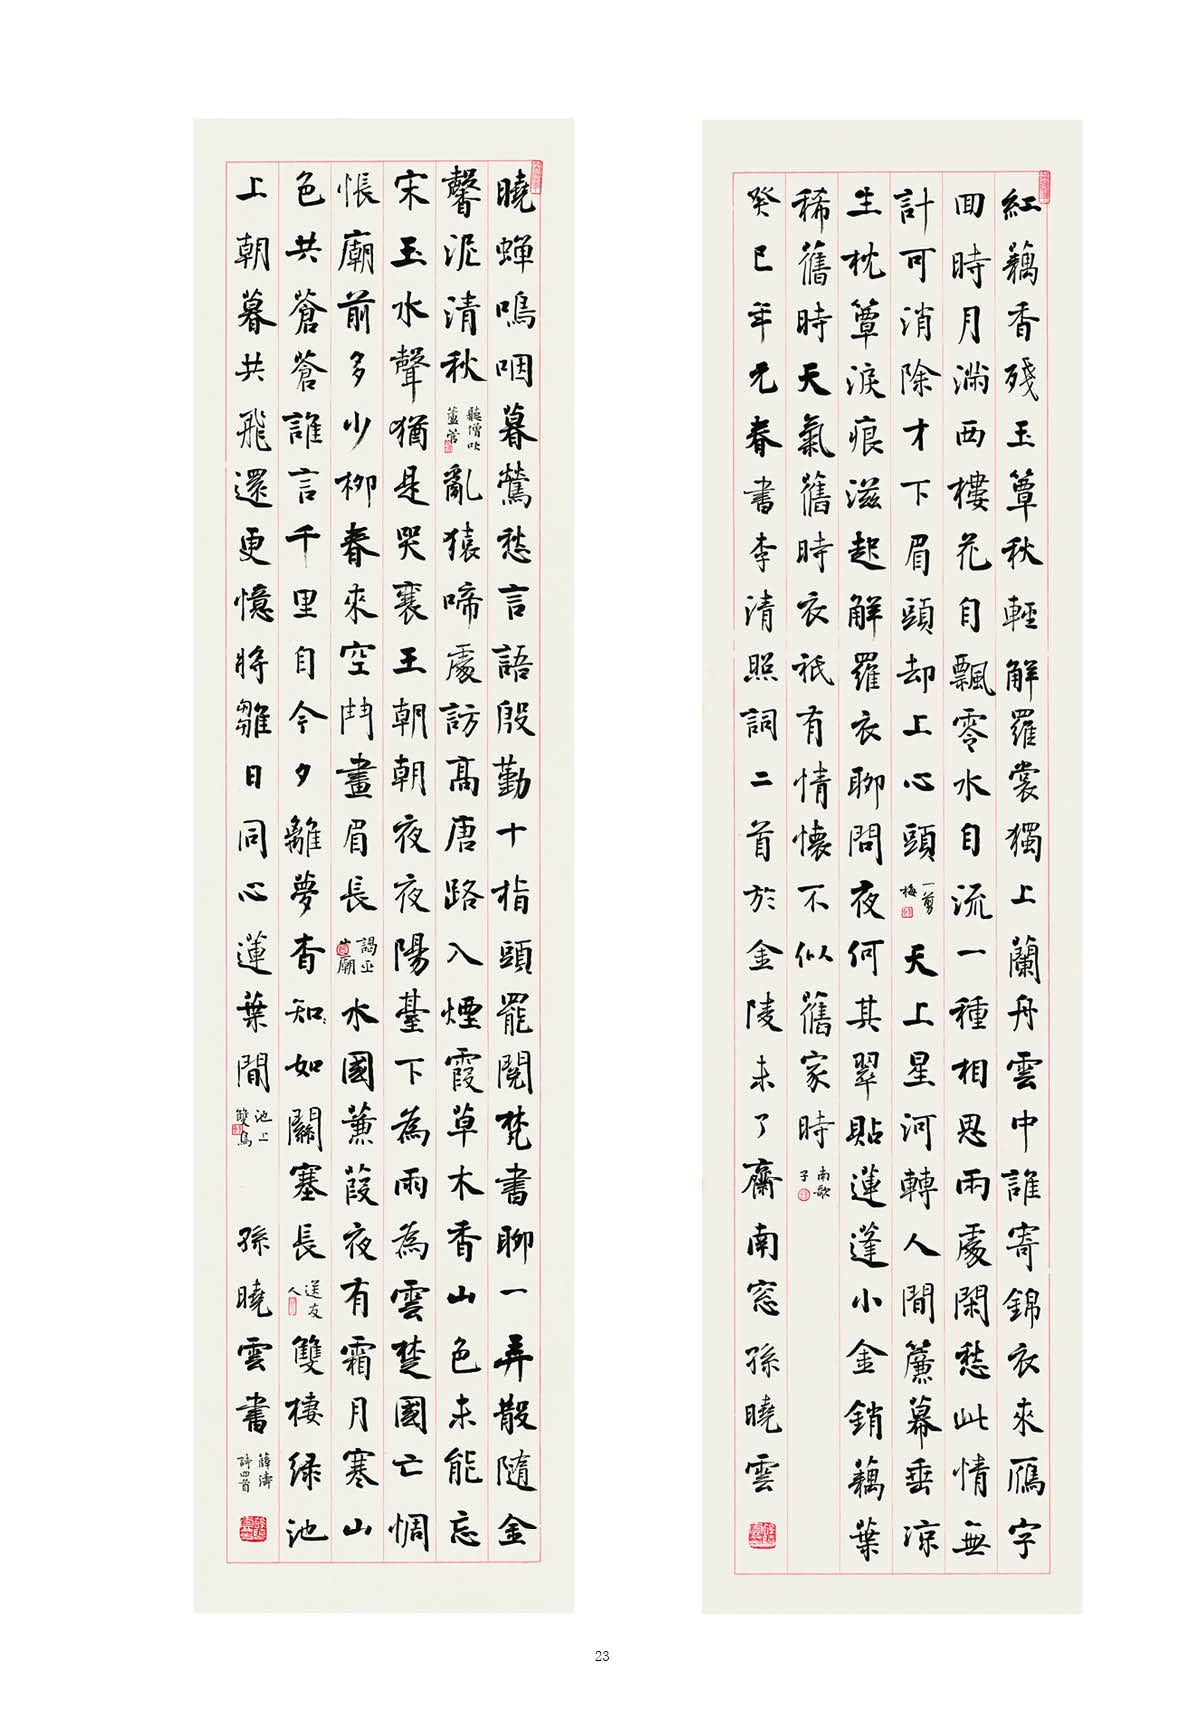 紅藕香殘玉簟秋輕解羅裳獨上蘭舟雲中誰寄錦衣來雁字
回時月滿西樓花自飄零水自流一種相思兩處閑愁此情無
計可消除才下眉頭却上心頭
一剪
梅
天上星河轉人間簾幕垂涼
生枕簟淚痕滋起解羅衣聊問夜何其翠貼蓮蓬小金銷藕葉
稀舊時天氣舊時衣祇有情懷不似舊家時
南歌
子
癸巳年元春書李清照詞二首於金陵未了齋南窓孫曉雲
曉蟬鳴咽暮鶯愁言語殷勤十指頭罷閱梵書聊一弄散隨金
磬泥清秋
聽僧吹
蘆管
亂猿啼處訪高唐路入煙霞草木香山色未能忘
宋玉水聲猶是哭襄王朝朝夜夜陽臺下為雨為雲楚國亡惆
悵廟前多少柳春來空鬥畫眉長
謁巫
山廟
水國蒹葭夜有霜月寒山
色共蒼蒼誰言千里自今夕離夢杳知如關塞長
送友
人
雙棲綠池
上朝暮共飛還更憶將雛日同心蓮葉間
池上
雙鳥
孫曉雲書
薛濤
詩四首
23